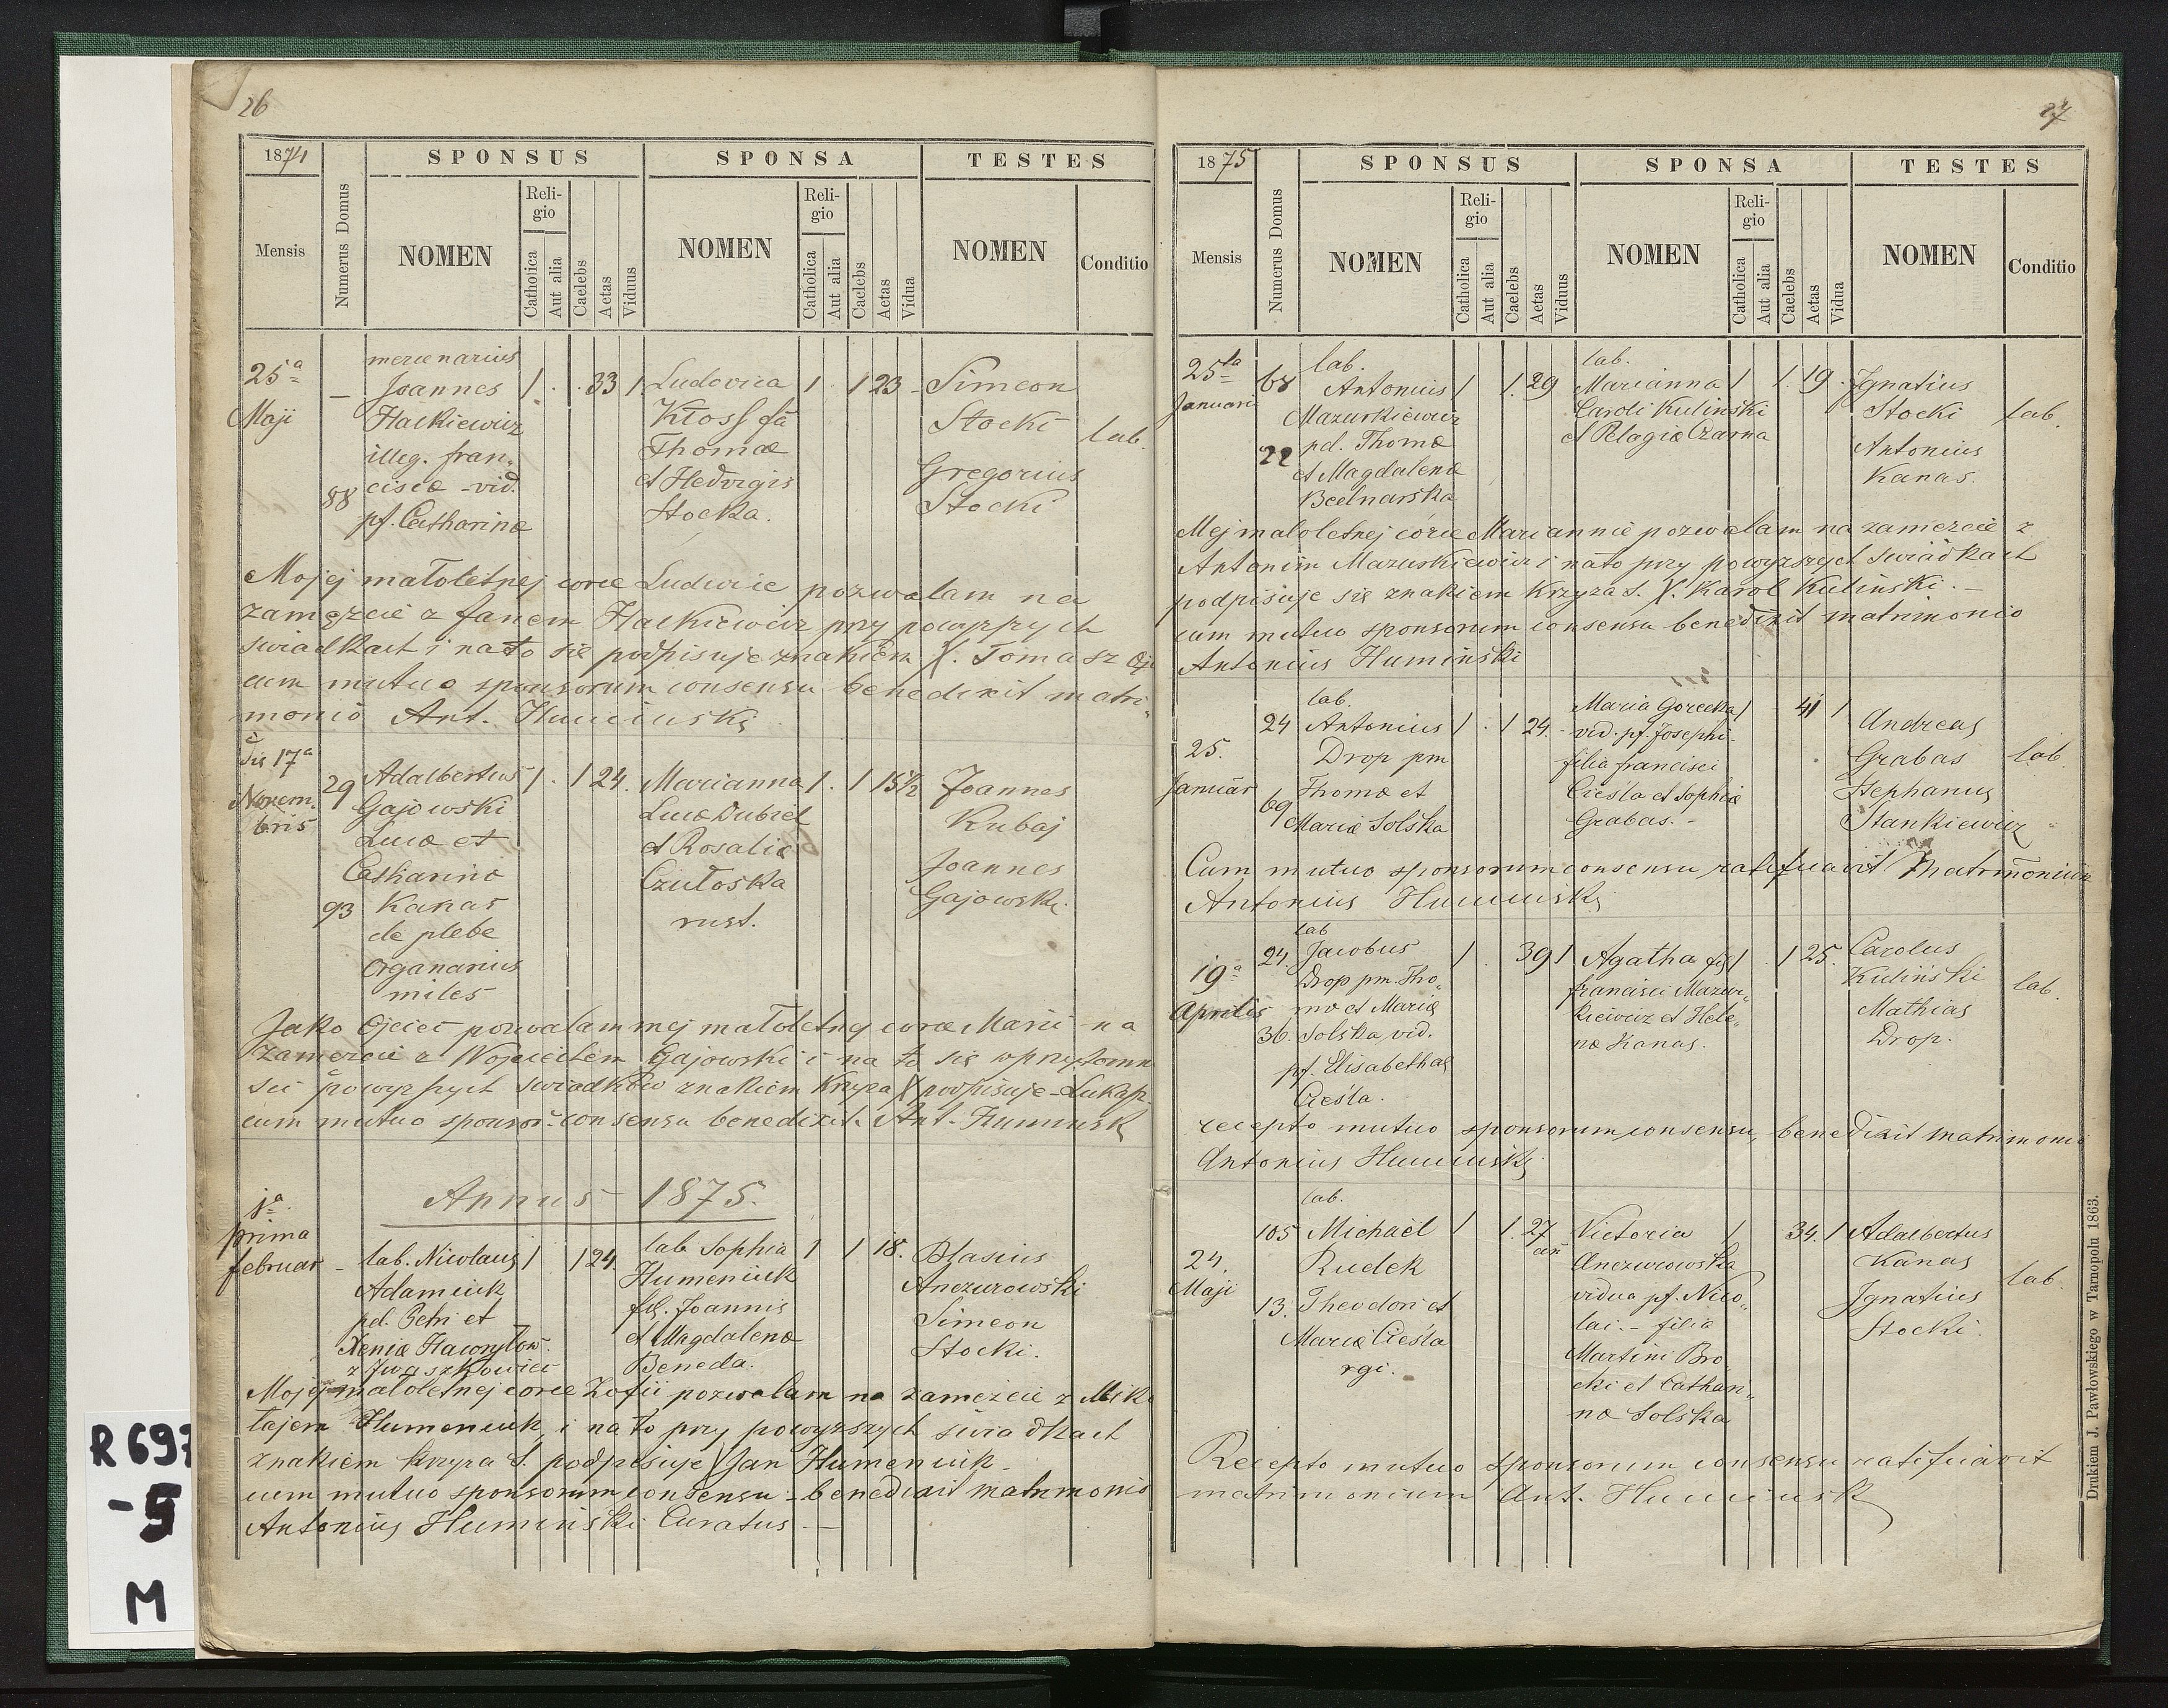 26
1874
SPONSUS
SPONSA
TESTES
Mensis
Numerus Domus
NOMEN
Religio
Catholica
Aut alia
Caelebs
Aetas
Viduus
NOMEN
Religio
Catholica
Aut alia
Caelebs
Aetas
Vidua
NOMEN
Conditio
25a
Maji
88
mercenarius
Joannes
illeg. fran-
ciscæ - vid.
pf. Catharinæ
1 33 1
Ludovica
Kłoss fa
Thomæ
et Hedvigis
Stocka.
1 1 23
Simeon
Stocki
Gregorius
Stocki
lab.
Mojej małoletnej corce Ludwice pozwalam na
zamęzcie z Janem przy powyzszych
swiadkach i na to się podpisuje znakiem X. Tomasz
cum mutuo sponsorum consensu benedixit matri-
monio Ant. Humiński
17a
Novem-
bris
29
93
Adalbertus
Gajowski
Lucæ et
Catharinæ
Kanas
de plebe
organarius
miles
1 1 24.
Marianna
Lucæ Dubiel
et Rosaliæ
Czułoska
rust.
1 1 15 1/2
Joannes
Kubaj
Joannes
Gajowski
Jako Ojciec pozwalam mej małoletnej corce Marii na
zamezcie z Wojciechem Gajowski i na to się w przytomno
sci powyzszych swiadków znakiem Krzyza X podpisuje - Łukasz
cum mutuo sponsor. consensu benedixit. Ant. Humiński
Annus 1875.
1a
prima
februar
lab. Nicolaus
Adamiuk
pd. Petri et
Xeniæ Hawryłow.
1 1 24
lab. Sophia
Humeniuk
fil. Joannis
et Magdalenæ
Beneda.
1 1 18.
Blasius
Anczurowski
Simeon
Stocki.
Mojej małoletnej corce Zofii pozwalam na zamezcie z Miko
łajem Humeniuk i na to przy powyzszych swiadkach
znakiem krzyza S. podpisuje X Jan Humeniuk
cum mutuo sponsorum consensu - benedixit matrimonio
Antonius Humiński Curatus.
27
1875
SPONSUS
SPONSA
TESTES
Mensis
Numerus Domus
NOMEN
Religio
Catholica
Aut alia
Caelebs
Aetas
Viduus
NOMEN
Religio
Catholica
Aut alia
Caelebs
Aetas
Vidua
NOMEN
Conditio
25ta
Januarii
68
22
lab.
Antonius
Mazurkiewicz
pd. Thomæ
et Magdalenæ
Bednarska
1 1. 29
lab.
Marianna
Caroli Kulinski
et Pelagiæ Czarna
1 1. 19.
Ignatius
Stocki
Antonius
Kanas.
lab.
Mej małoletnej córce Mariannie pozwalam na zamezcie z
Antonim Mazurkiewicz i nato przy powyzszych swiadkach
podpisuje się znakiem Krzyza S. X. Karol Kulinski. -
cum mutuo sponsorum consensu benedixit matrimonio
Antonius Humiński
25.
Januar
24
69
lab.
Antonius
Drop pm
Thomæ et
Mariæ Solska
1 1 24.
Maria Gorecka
vid. pf. Josephi
filia francisci
Ciesla et Sophiæ
Grabas.
1 41 1
Andreas
Grabas
Stephanus
Stankiewicz
lab.
Cum mutuo sponsorum consensu ratificavit Matrimonium
Antonius Humiński
19a
Aprilis
24.
36.
lab
Jacobus
Drop pm. Tho-
mæ et Mariæ
Solska vid.
pf. Elisabethæ
Cieśla.
1 39 1
Agatha fil
francisci Mazur-
kiewicz et Hele-
næ Kanas.
1 1 25.
Carolus
Kuliński
Mathias
Drop.
lab.
recepto mutuo sponsorum consensu, benedixit matrimonio
Antonius Humiński
24.
Maji
105
13.
lab.
Michael
Rudek
Theodori et
Mariæ Cieśla
rgi.
1 1. 27
an
Victoria
Anczurowska
vidua pf. Nico-
lai. - filia
Martini Bro
cki et Cathari-
næ Solska
1 34. 1
Adalbertus
Kanas
Ignatius
Stocki.
lab.
Recepto mutuo sponsorum consensu ratificavit
matrimonium Ant. Humiński
Drukiem J. Pawłowskiego w Tarnopolu 1863.
R 697
-5
M